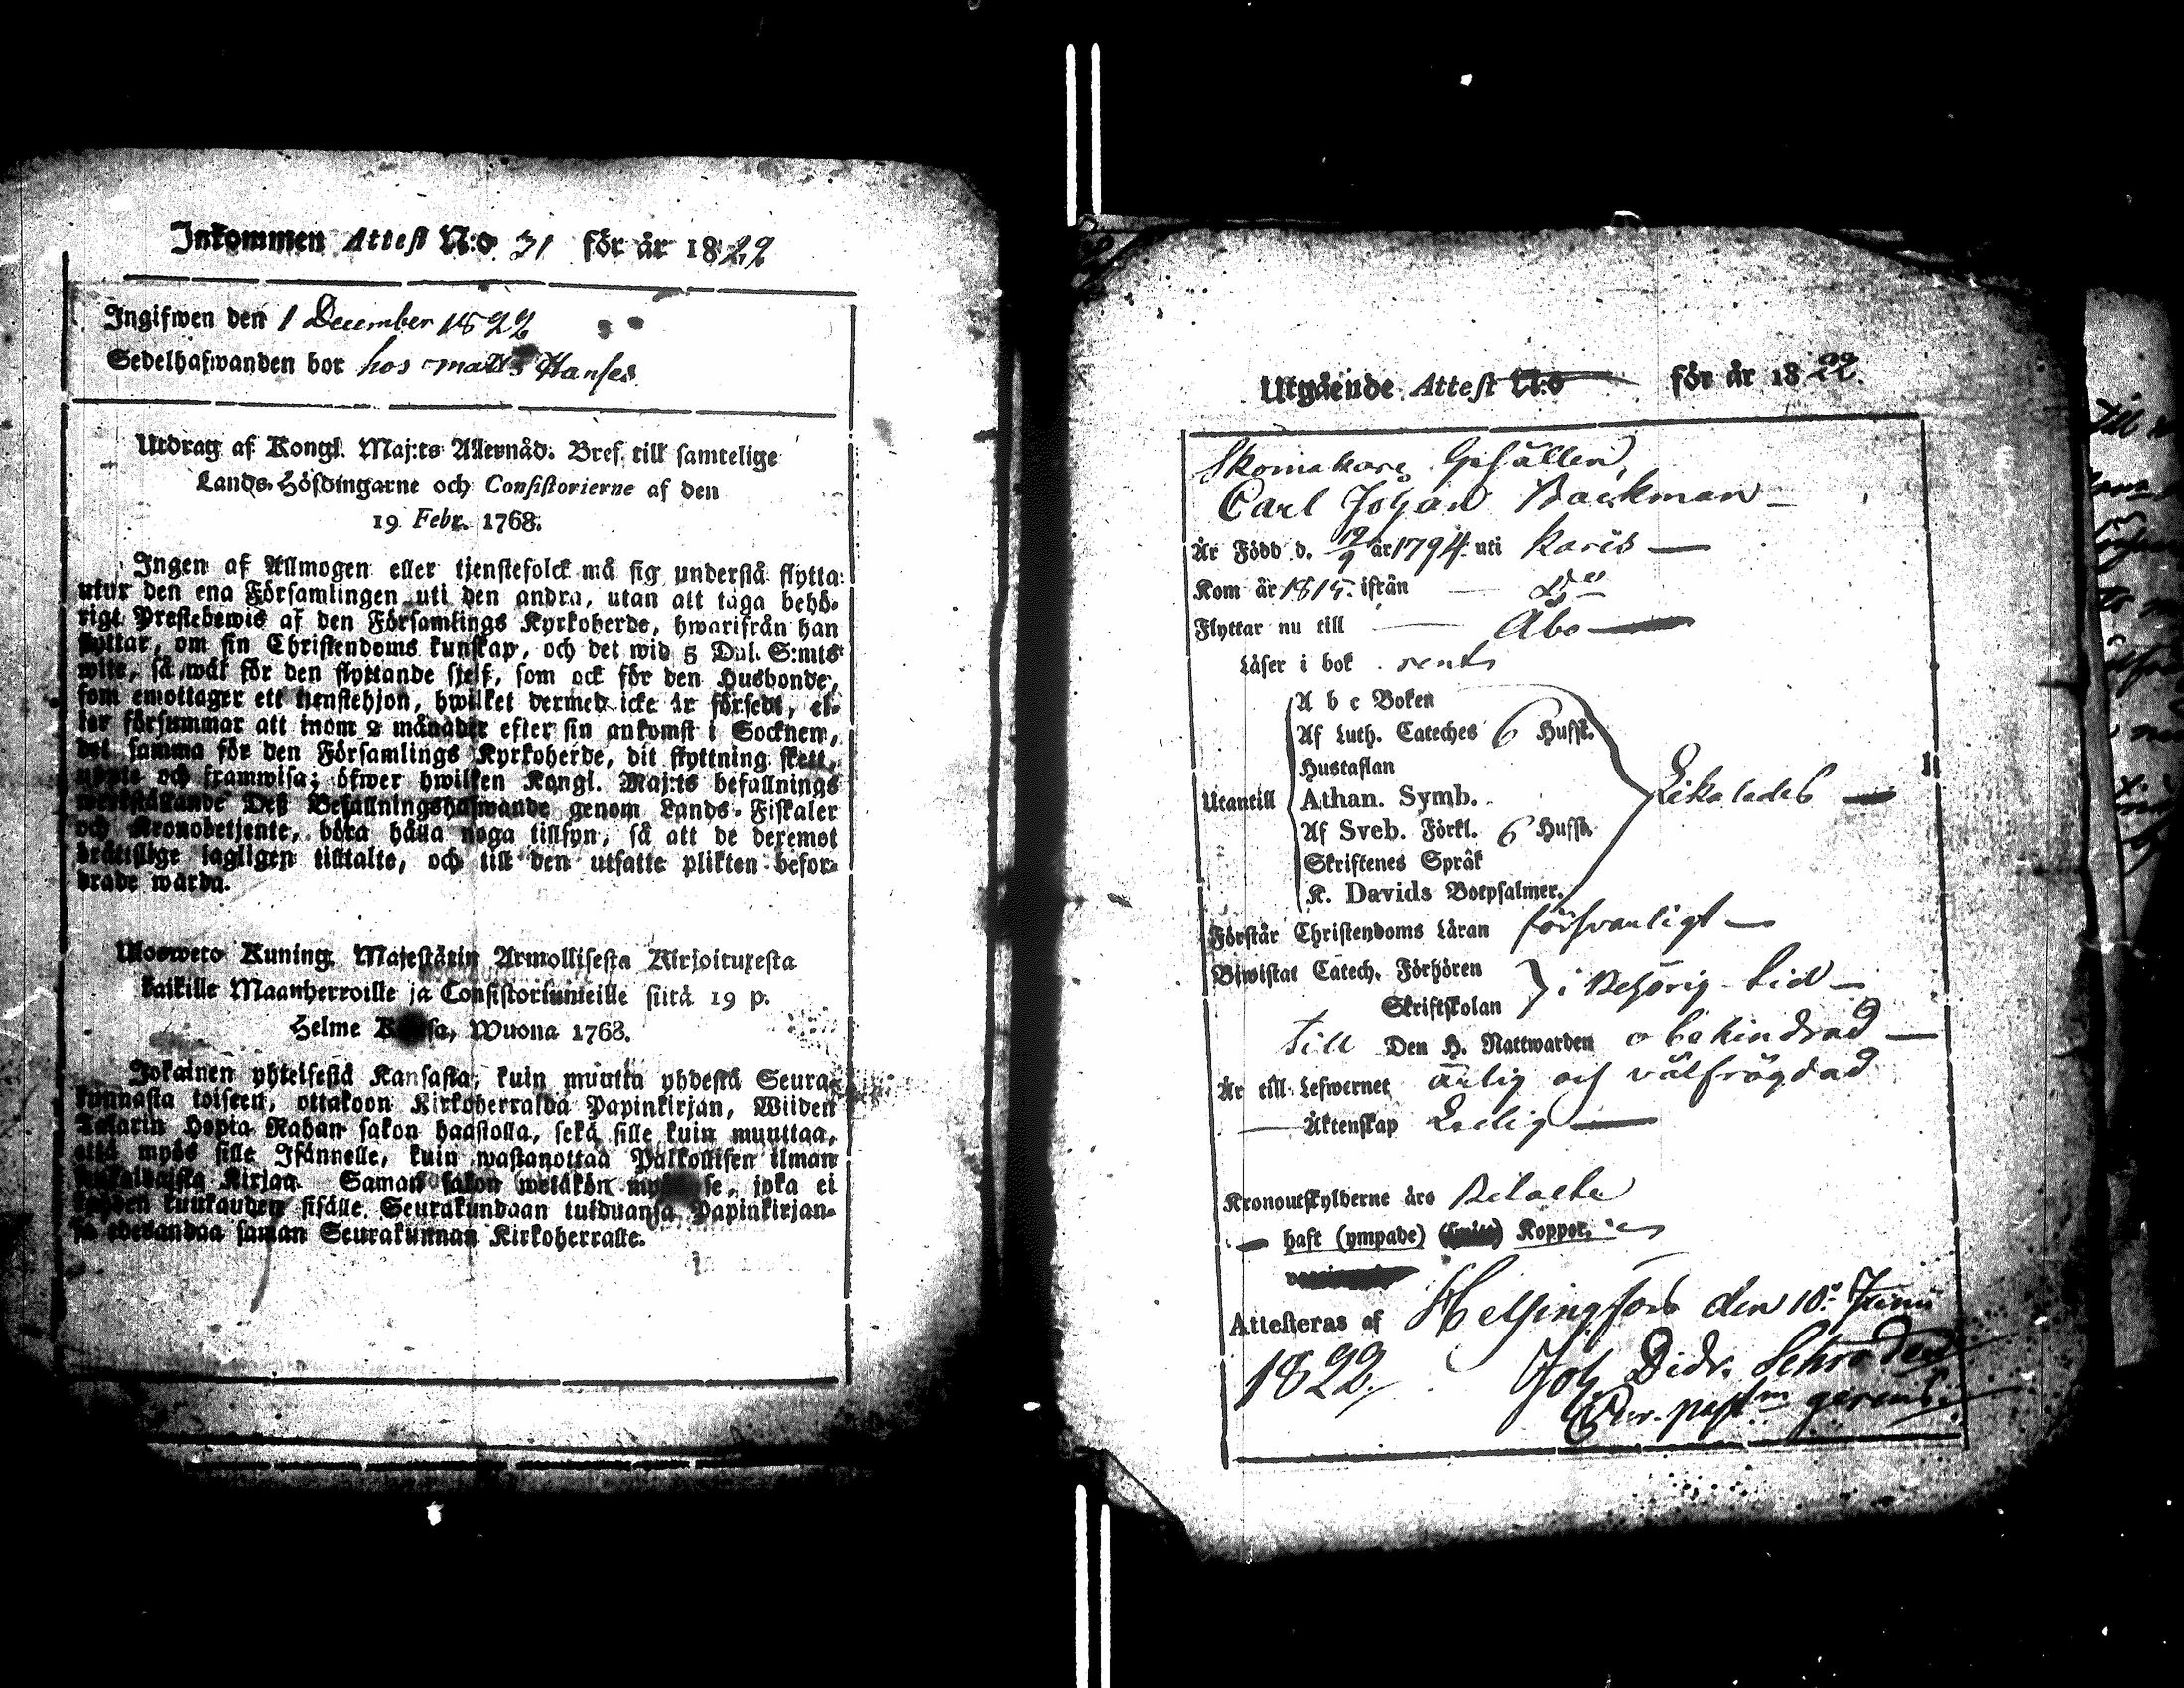 Inkommen Attest N:o 31 för år 1822
Ingifwen den 1 December 1822
Sedelhafwanden bor hos Matts Hanses
Utdrag af Kongl. Maj:ts Allernåd. Bref till samtelige
Lands-Höfdingarne och Consistorierne af den
19 Febr. 1768.
Ingen af Allmogen eller tjenstefolck må sig understå flytta
utur den ena Församlingen uti den andra, utan att taga behö-
rigt Prestebewis af den Församlings Kyrkoherde, hwarifrån han
flyttar, om sin Christendoms kunskap, och det wid 5 Dal. S:mts
wite, så wäl för den flyttande sjelf, som ock för den Husbonde,
som emottager ett tienstehjon, hwilket dermed icke är försedt, el-
ler försummar att inom 2 månader efter sin ankomst i Socknen,
det samma för den Församlings Kyrkoherde, dit flyttning skett,
upte och framwisa; öfwer hwilken Kongl. Maj:ts befallnings
werkställande Deß Befallningshafwande genom Lands-Fiskaler
och Kronobetjente, böra hålla noga tillsyn, så att de deremot
brättslige lagligen tilltalte, och till den utsatte plikten befor-
drade warda.
Uloswet Kuning. Majestätin Armollisesta Kirjoituxesta
kaikille Maanherroille ja Consistoriumeille siitä 19 p.
Helme Kuusa, Wuona 1768.
Jokainen yhteisestä Kansasta, kuin muutta yhdestä Seura-
kunnasta toiseen, ottakoon Kirkoherralda Papinkirjan, Wiiden
Talarin Hopia Rahan sakon haastolla, sekä sille kuin muuttaa,
että myös sille Isännelle, kuin wastanottaa Palkollisen ilman
Kirjaa. Saman sakon wetäkön myös se, joka ei
kahden kuukauden sisälle Seurakundaan tulduansa Papinkirjan-
sa edesandaa saman Seurakunnan Kirkoherralle.
Utgående Attest N:o för år 1822.
Skomakare Gesällen,
Carl Johan Backman
Är Född d. 12/9 år 1794 uti Karis
Kom år 1815. ifrån Do
Flyttar nu till Åbo
Läser i bok rent
A b c Boken
Af Luth. Cateches 6 Hufst.
Hustaflan
Utantill Athan. Symb. Likaledes
Af Sveb. Förkl. 6 Hufst.
Skriftenes Språk
K. Davids Botpsalmer.
Förstår Christendoms Läran försvarligt
Biwistat Catech. Förhören
Skriftskolan i behörig tid
till Den H. Nattwarden obehindrad
Är till Lefwernet ärlig och välfrägdad
Äktenskap Ledig
Kronoutskylderne äro Betalte
haft (ympade) Koppor.
Attesteras af Helsingfors den 10. Junii
1822. Joh. Didr. Schroder
Cur. past:m gerens.